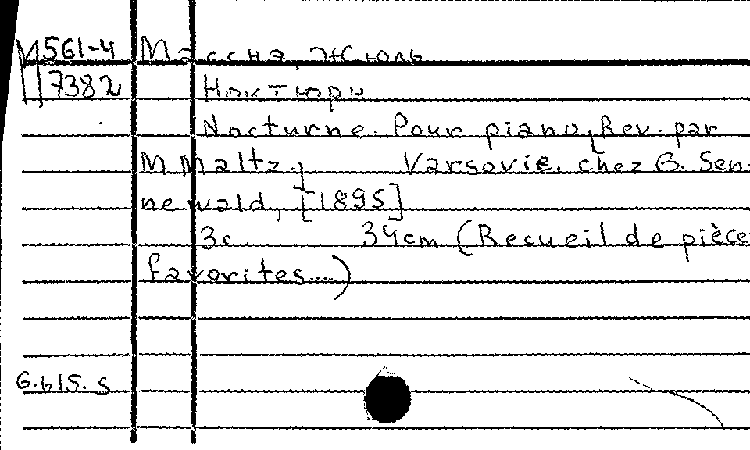 М561-4 Массна, Жюль
7382 Ноктюрн
Nocturne. Pour piano, Rev. par
M Maltz. Varsovie. chez G. Sen-
newald, [1895]
3с 34cm (Recueil de pièces
favorites....)